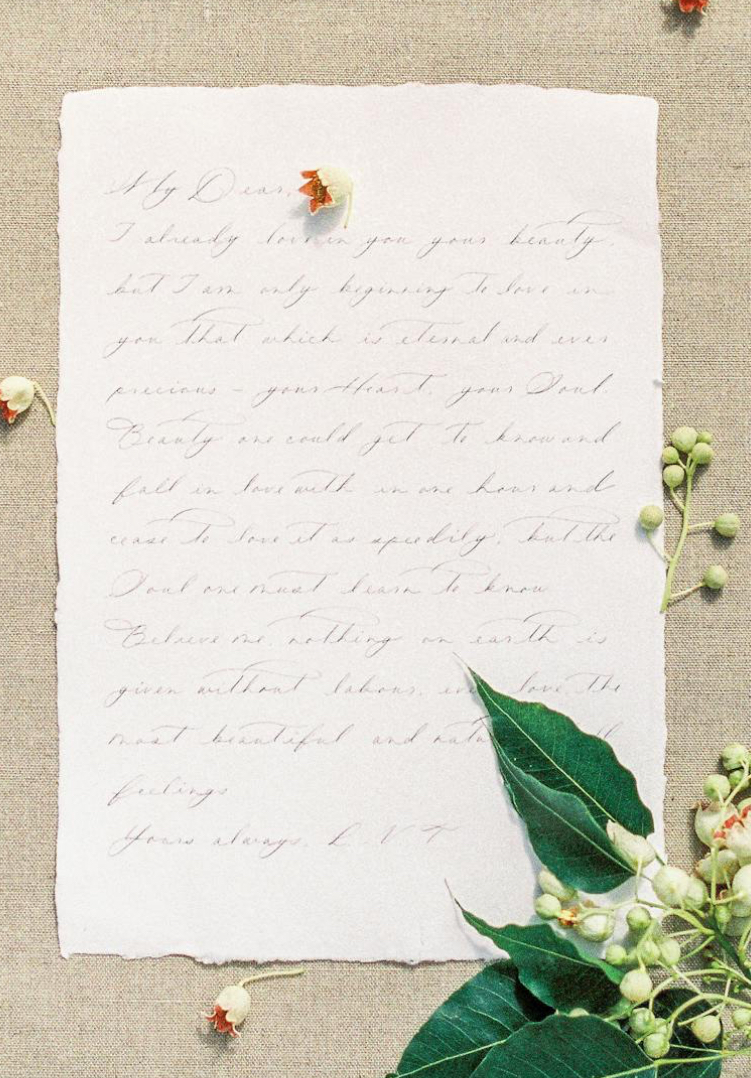 My Dear,
I already love in you your beauty,
but I am only beginning to love in
you that which is eternal and ever
precious – your Heart, your Soul.
Beauty one could get to know and
fall in love with in one hour and
cease to love it as speedily, but the
Soul one must learn to know.
Believe me, nothing on earth is
given without labour, even love, the
most beautiful and
feelings
Yours always, L. N. T.